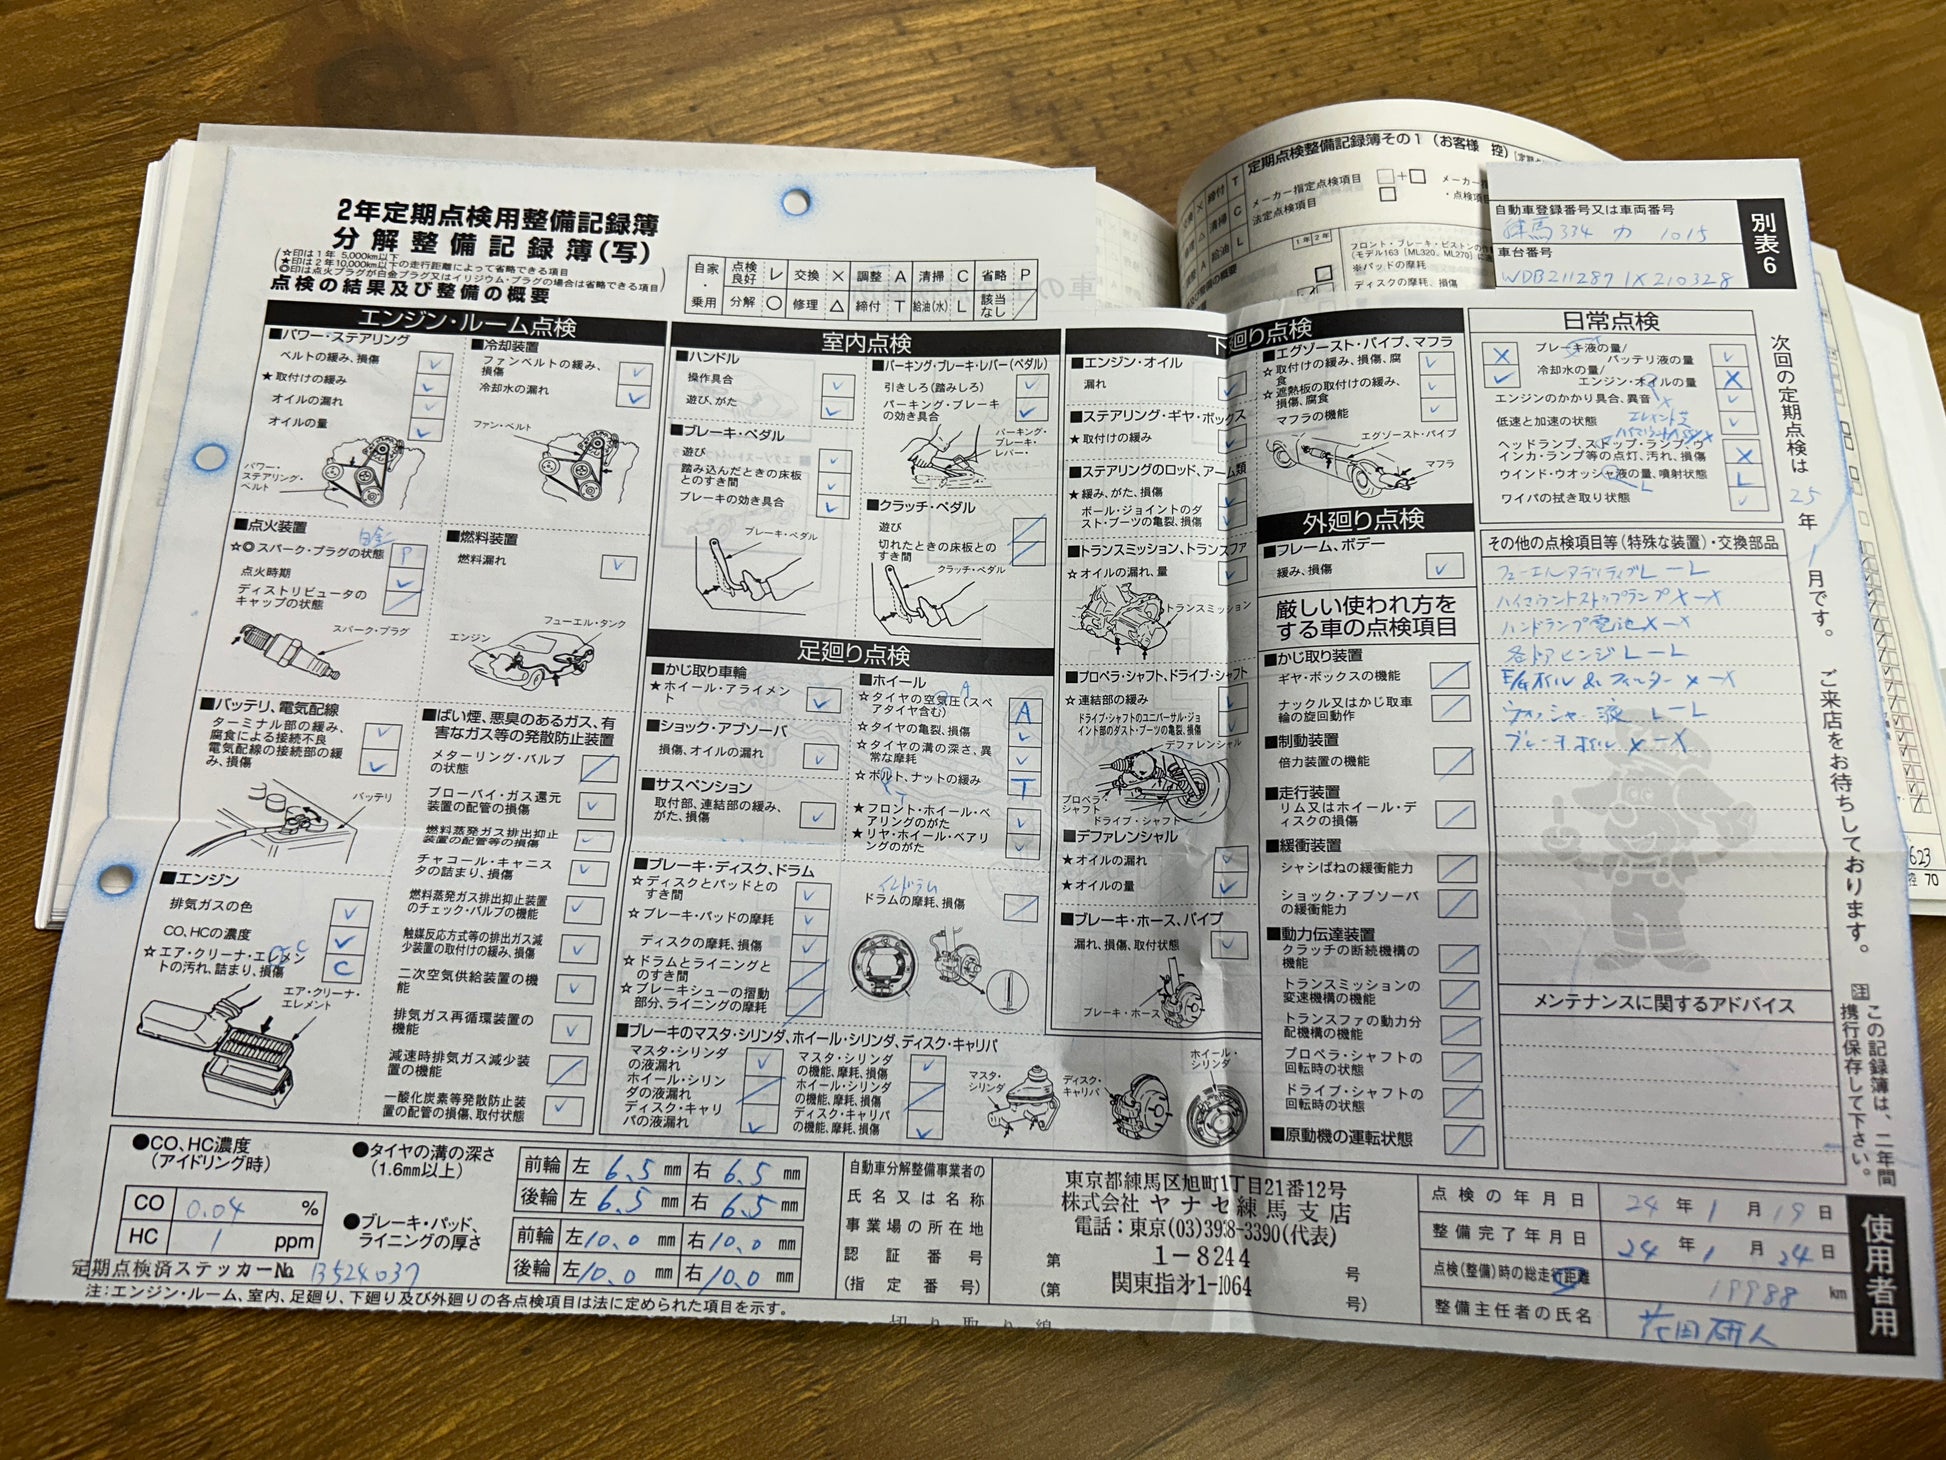 定期点検整備記録簿その1（お客様 控）
メーカー指定点検項目
法定点検項目
・点検項目
1年 2年
フロント・ブレーキ・ピストンの作
（モデル163［ML320、ML270］に適
※パッドの摩耗
ディスクの摩耗、損傷
2年定期点検用整備記録簿
分解整備記録簿(写)
☆印は1年 5,000km以下
★印は2年10,000km以下の走行距離によって省略できる項目
◎印は点火プラグが白金プラグ又はイリジウム・プラグの場合は省略できる項目
点検の結果及び整備の概要
自家・乗用
点検良好 レ 交換 × 調整 A 清掃 C 省略 P
分解 ○ 修理 △ 締付 T 給油(水) L 該当なし /
自動車登録番号又は車両番号
練馬 334 カ 1015
車台番号
WDB2112871X210328
別表6
エンジン・ルーム点検
■パワー・ステアリング
ベルトの緩み、損傷
★取付けの緩み
オイルの漏れ
オイルの量
パワー・ステアリング・ベルト
■冷却装置
ファンベルトの緩み、損傷
冷却水の漏れ
ファン・ベルト
■点火装置
白金
☆◎スパーク・プラグの状態 P
点火時期
ディストリビュータのキャップの状態
スパーク・プラグ
■燃料装置
燃料漏れ
フューエル・タンク
エンジン
■バッテリ、電気配線
ターミナル部の緩み、腐食による接続不良
電気配線の接続部の緩み、損傷
バッテリ
■エンジン
排気ガスの色
CO、HCの濃度
☆エア・クリーナ・エレメントの汚れ、詰まり、損傷 C
エア・クリーナ・エレメント
■ばい煙、悪臭のあるガス、有害なガス等の発散防止装置
メターリング・バルブの状態
ブローバイ・ガス還元装置の配管の損傷
燃料蒸発ガス排出抑止装置の配管等の損傷
チャコール・キャニスタの詰まり、損傷
燃料蒸発ガス排出抑止装置のチェック・バルブの機能
触媒反応方式等の排出ガス減少装置の取付けの緩み、損傷
二次空気供給装置の機能
排気ガス再循環装置の機能
減速時排気ガス減少装置の機能
一酸化炭素等発散防止装置の配管の損傷、取付状態
室内点検
■ハンドル
操作具合
遊び、がた
■ブレーキ・ペダル
遊び
踏み込んだときの床板とのすき間
ブレーキの効き具合
ブレーキ・ペダル
■パーキング・ブレーキ・レバー(ペダル)
引きしろ(踏みしろ)
パーキング・ブレーキの効き具合
パーキング・ブレーキ・レバー
■クラッチ・ペダル
遊び
切れたときの床板とのすき間
クラッチ・ペダル
足廻り点検
■かじ取り車輪
★ホイール・アライメント
■ショック・アブソーバ
損傷、オイルの漏れ
■サスペンション
取付部、連結部の緩み、がた、損傷
■ホイール
☆タイヤの空気圧(スペアタイヤ含む) A
☆タイヤの亀裂、損傷
☆タイヤの溝の深さ、異常な摩耗
☆ボルト、ナットの緩み T
★フロント・ホイール・ベアリングのがた
★リヤ・ホイール・ベアリングのがた
■ブレーキ・ディスク、ドラム
☆ディスクとパッドとのすき間
☆ブレーキ・パッドの摩耗
ディスクの摩耗、損傷
☆ドラムとライニングとのすき間
☆ブレーキシューの摺動部分、ライニングの摩耗
インドラム
ドラムの摩耗、損傷
■ブレーキのマスタ・シリンダ、ホイール・シリンダ、ディスク・キャリパ
マスタ・シリンダの液漏れ
ホイール・シリンダの液漏れ
ディスク・キャリパの液漏れ
マスタ・シリンダの機能、摩耗、損傷
ホイール・シリンダの機能、摩耗、損傷
ディスク・キャリパの機能、摩耗、損傷
マスタ・シリンダ
ディスク・キャリパ
ホイール・シリンダ
下廻り点検
■エンジン・オイル
漏れ
■ステアリング・ギヤ・ボックス
★取付けの緩み
■ステアリングのロッド、アーム類
★緩み、がた、損傷
ボール・ジョイントのダスト・ブーツの亀裂、損傷
■トランスミッション、トランスファ
☆オイルの漏れ、量
トランスミッション
■プロペラ・シャフト、ドライブ・シャフト
☆連結部の緩み
ドライブ・シャフトのユニバーサル・ジョイント部のダスト・ブーツの亀裂、損傷
デファレンシャル
プロペラ・シャフト
ドライブ・シャフト
■デファレンシャル
★オイルの漏れ
★オイルの量
■ブレーキ・ホース、パイプ
漏れ、損傷、取付状態
ブレーキ・ホース
■エグゾースト・パイプ、マフラ
☆取付けの緩み、損傷、腐食
☆遮熱板の取付けの緩み、損傷、腐食
マフラの機能
エグゾースト・パイプ
マフラ
外廻り点検
■フレーム、ボデー
緩み、損傷
厳しい使われ方をする車の点検項目
■かじ取り装置
ギヤ・ボックスの機能
ナックル又はかじ取車輪の旋回動作
■制動装置
倍力装置の機能
■走行装置
リム又はホイール・ディスクの損傷
■緩衝装置
シャシばねの緩衝能力
ショック・アブソーバの緩衝能力
■動力伝達装置
クラッチの断続機構の機能
トランスミッションの変速機構の機能
トランスファの動力分配機構の機能
プロペラ・シャフトの回転時の状態
ドライブ・シャフトの回転時の状態
■原動機の運転状態
日常点検
ブレーキ液の量/バッテリ液の量
冷却水の量/エンジン・オイルの量
エンジンのかかり具合、異音
低速と加速の状態
ヘッドランプ、ストップ・ランプ、ウインカ・ランプ等の点灯、汚れ、損傷
ウインド・ウオッシャ液の量、噴射状態 L
ワイパの拭き取り状態
その他の点検項目等(特殊な装置)・交換部品
フューエルアディティブ L—L
ハイマウントストップランプ X—X
ハンドランプ電池 X—X
各ドアヒンジ L—L
E/gオイル & フィルター X—X
ウォッシャー液 L—L
ブレーキオイル X—X
メンテナンスに関するアドバイス
次回の定期点検は 25 年 1 月です。ご来店をお待ちしております。
注 この記録簿は、二年間携行保存して下さい。
●CO、HC濃度
(アイドリング時)
CO 0.04 %
HC 1 ppm
●タイヤの溝の深さ
(1.6mm以上)
前輪 左 6.5 mm 右 6.5 mm
後輪 左 6.5 mm 右 6.5 mm
●ブレーキ・パッド、ライニングの厚さ
前輪 左 10.0 mm 右 10.0 mm
後輪 左 10.0 mm 右 10.0 mm
定期点検済ステッカーNo. B524037
注：エンジン・ルーム、室内、足廻り、下廻り及び外廻りの各点検項目は法に定められた項目を示す。
切り取り線
自動車分解整備事業者の
氏名又は名称
事業場の所在地
認証番号
(指定番号)
東京都練馬区旭町1丁目21番12号
株式会社 ヤナセ練馬支店
電話：東京(03)3938-3390(代表)
第 1-8244 号
(第 関東指第1-1064 号)
点検の年月日 24年 1月 19日
整備完了年月日 24年 1月 24日
点検(整備)時の総走行距離 19988 km
整備主任者の氏名
使用者用
623
控 70